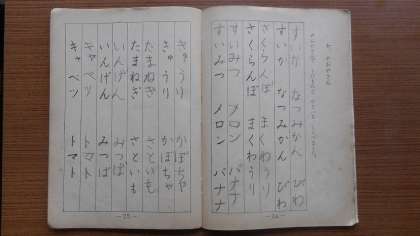 すいか なつみかん びわ
すいか なつみかん びわ
さくらんぼ まくわうり
さくらんぼ まくわうり
すいみつ メロン バナナ
すいみつ メロン バナナ
— 24 —
きゅうり かぼちゃ
きゅうり かぼちゃ
たまねぎ さといも
たまねぎ さといも
いんげん みつば
いんげん みつば
キャベツ トマト
キャベツ トマト
— 25 —